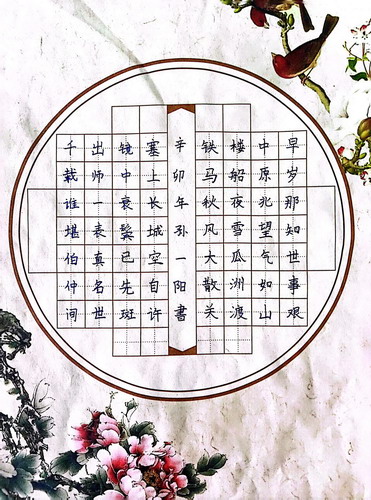 早岁那知世事艰
中原北望气如山
楼船夜雪瓜洲渡
铁马秋风大散关
辛卯年孙一阳書
塞上长城空自许
镜中衰鬓已先斑
出师一表真名世
千载谁堪伯仲间